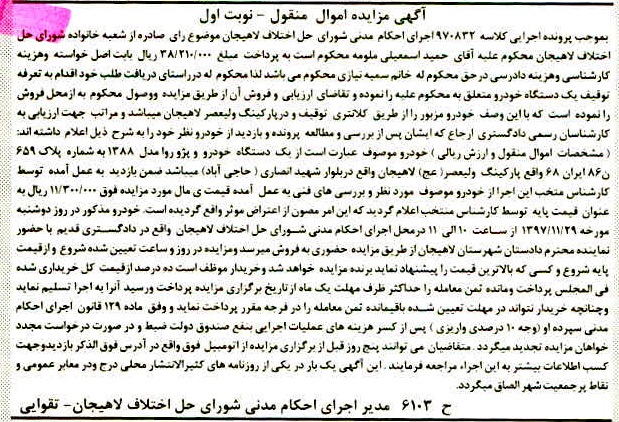 آگهی مزایده اموال منقول - نوبت اول
بموجب پرونده اجرایی کلاسه ۹۷۰۸۳۲ اجرای احکام مدنی شورای حل اختلاف لاهیجان موضوع رای صادره از شعبه خانواده شورای حل
اختلاف لاهیجان محکوم علیه آقای حمید اسمعیلی ملومه محکوم است به پرداخت مبلغ ۳۸/۲۱۰/۰۰۰ ریال بابت اصل خواسته وهزینه
کارشناسی وهزینه دادرسی درحق محکوم له خانم سمیه نیازی محکوم می باشد لذا محکوم له درراستای دریافت طلب خود اقدام به تعرفه
توقیف یک دستگاه خودرو متعلق به محکوم علیه را نموده و تقاضای ارزیابی و فروش آن از طریق مزایده ووصول محکوم به ازمحل فروش
را نموده است که با این وصف خودرو مزبور را از طریق کلانتری توقیف و درپارکینگ ولیعصر لاهیجان میباشد و مراتب جهت ارزیابی به
کارشناسان رسمی دادگستری ارجاع که ایشان پس از بررسی و مطالعه پرونده و بازدید از خودرو نظر خود را به شرح ذیل اعلام داشته اند:
( مشخصات اموال منقول و ارزش ریالی ) خودرو موصوف عبارت است از یک دستگاه خودرو و پژو روا مدل ۱۳۸۸ به شماره پلاک ۶۵۹
ن۸۶ ایران ۶۸ واقع پارکینگ ولیعصر(عج) لاهیجان واقع دربلوار شهید انصاری ( حاجی آباد) میباشد ضمن بازدید به عمل آمده توسط
کارشناس متخب این اجرا از خودرو موصوف مورد نظر و بررسی های فنی به عمل آمده قیمت ی مال مورد مزایده فوق ۱۱/۳۰۰/۰۰۰ ریال به
عنوان قیمت پایه توسط کارشناس منتخب اعلام گردید که این امر مصون از اعتراض موثر واقع گردیده است. خودرو مذکور در روز دوشنبه
مورخه ۱۳۹۷/۱۱/۲۹ از ساعت ۱۰ الی ۱۱ درمحل اجرای احکام مدنی شورای حل اختلاف لاهیجان واقع در دادگستری قدیم با حضور
نماینده محترم دادستان شهرستان لاهیجان از طریق مزایده حضوری به فروش میرسد ومزایده در روز و ساعت تعیین شده شروع و ازقیمت
پایه شروع و کسی که بالاترین قیمت را پیشنهاد نماید برنده مزایده خواهد شد وخریدار موظف است ده درصد ازقیمت کل خریداری شده
فی المجلس پرداخت ومانده ثمن معامله را حداکثر ظرف مهلت یک ماه از تاریخ برگزاری مزایده پرداخت ورسید آنرا به اجرا تسلیم نماید
وچنانچه خریدار نتواند در مهلت تعیین شده باقیمانده ثمن معامله را در فرجه مقرر پرداخت نماید و وفق ماده ۱۲۹ قانون اجرای احکام
مدنی سپرده او (وجه ۱۰ درصدی واریزی ) پس از کسر هزینه های عملیات اجرایی بنفع صندوق دولت ضبط و در صورت درخواست مجدد
خواهان مزایده تجدید میگردد . متقاضیان می توانند پنج روز قبل از برگزاری مزایده از اتومبیل فوق واقع در آدرس فوق الذکر بازدیدوجهت
کسب اطلاعات بیشتر به این اجراء مراجعه فرمایند . این آگهی یک بار در یکی از روزنامه های کثیرالانتشار محلی درج ودر معابر عمومی و
نقاط پرجمعیت شهر الصاق میگردد.
ح ۶۱۰۳ مدیر اجرای احکام مدنی شورای حل اختلاف لاهیجان- تقوایی